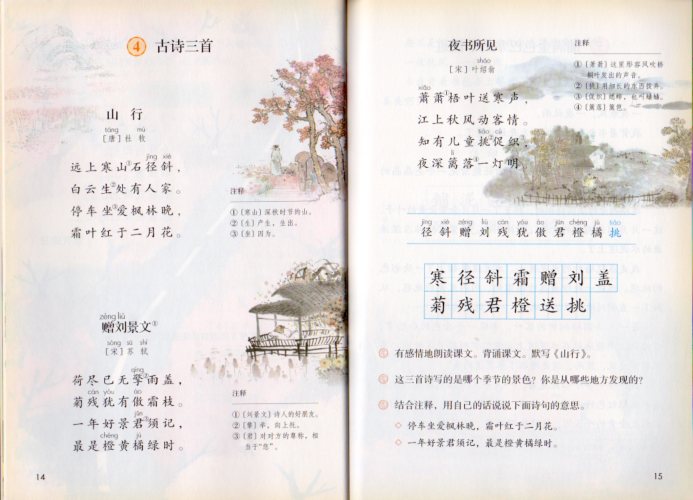 4 古诗三首
山行
táng mù
[唐]杜牧
jìng xié
远上寒山①石径斜，
白云生②处有人家。
停车坐③爱枫林晚，
霜叶红于二月花。
注释
①〔寒山〕深秋时节的山。
②〔生〕产生，生出。
③〔坐〕因为。
zèng liú
赠刘景文①
sòng sū shì
[宋]苏轼
qíng
荷尽已无擎②雨盖，
cán yóu ào
菊残犹有傲霜枝。
jūn
一年好景君③须记，
chéng jú
最是橙黄橘绿时。
注释
①〔刘景文〕诗人的好朋友。
②〔擎〕举，向上托。
③〔君〕对对方的尊称，相
当于“您”。
14
夜书所见
shào
[宋]叶绍翁
xiāo
萧萧①梧叶送寒声，
江上秋风动客情。
tiǎo cù
知有儿童挑②促织③，
lí
夜深篱落④一灯明。
注释
①〔萧萧〕这里形容风吹梧
桐叶发出的声音。
②〔挑〕用细长的东西拨弄。
③〔促织〕蟋蟀，也叫蛐蛐。
④〔篱落〕篱笆。
jìng xié zèng liú cán yóu ào jūn chéng jú tiǎo
径斜赠刘残犹傲君橙橘挑
寒径斜霜赠刘盖
菊残君橙送挑
有感情地朗读课文。背诵课文。默写《山行》。
这三首诗写的是哪个季节的景色？你是从哪些地方发现的？
结合注释，用自己的话说说下面诗句的意思。
◇ 停车坐爱枫林晚，霜叶红于二月花。
◇ 一年好景君须记，最是橙黄橘绿时。
15